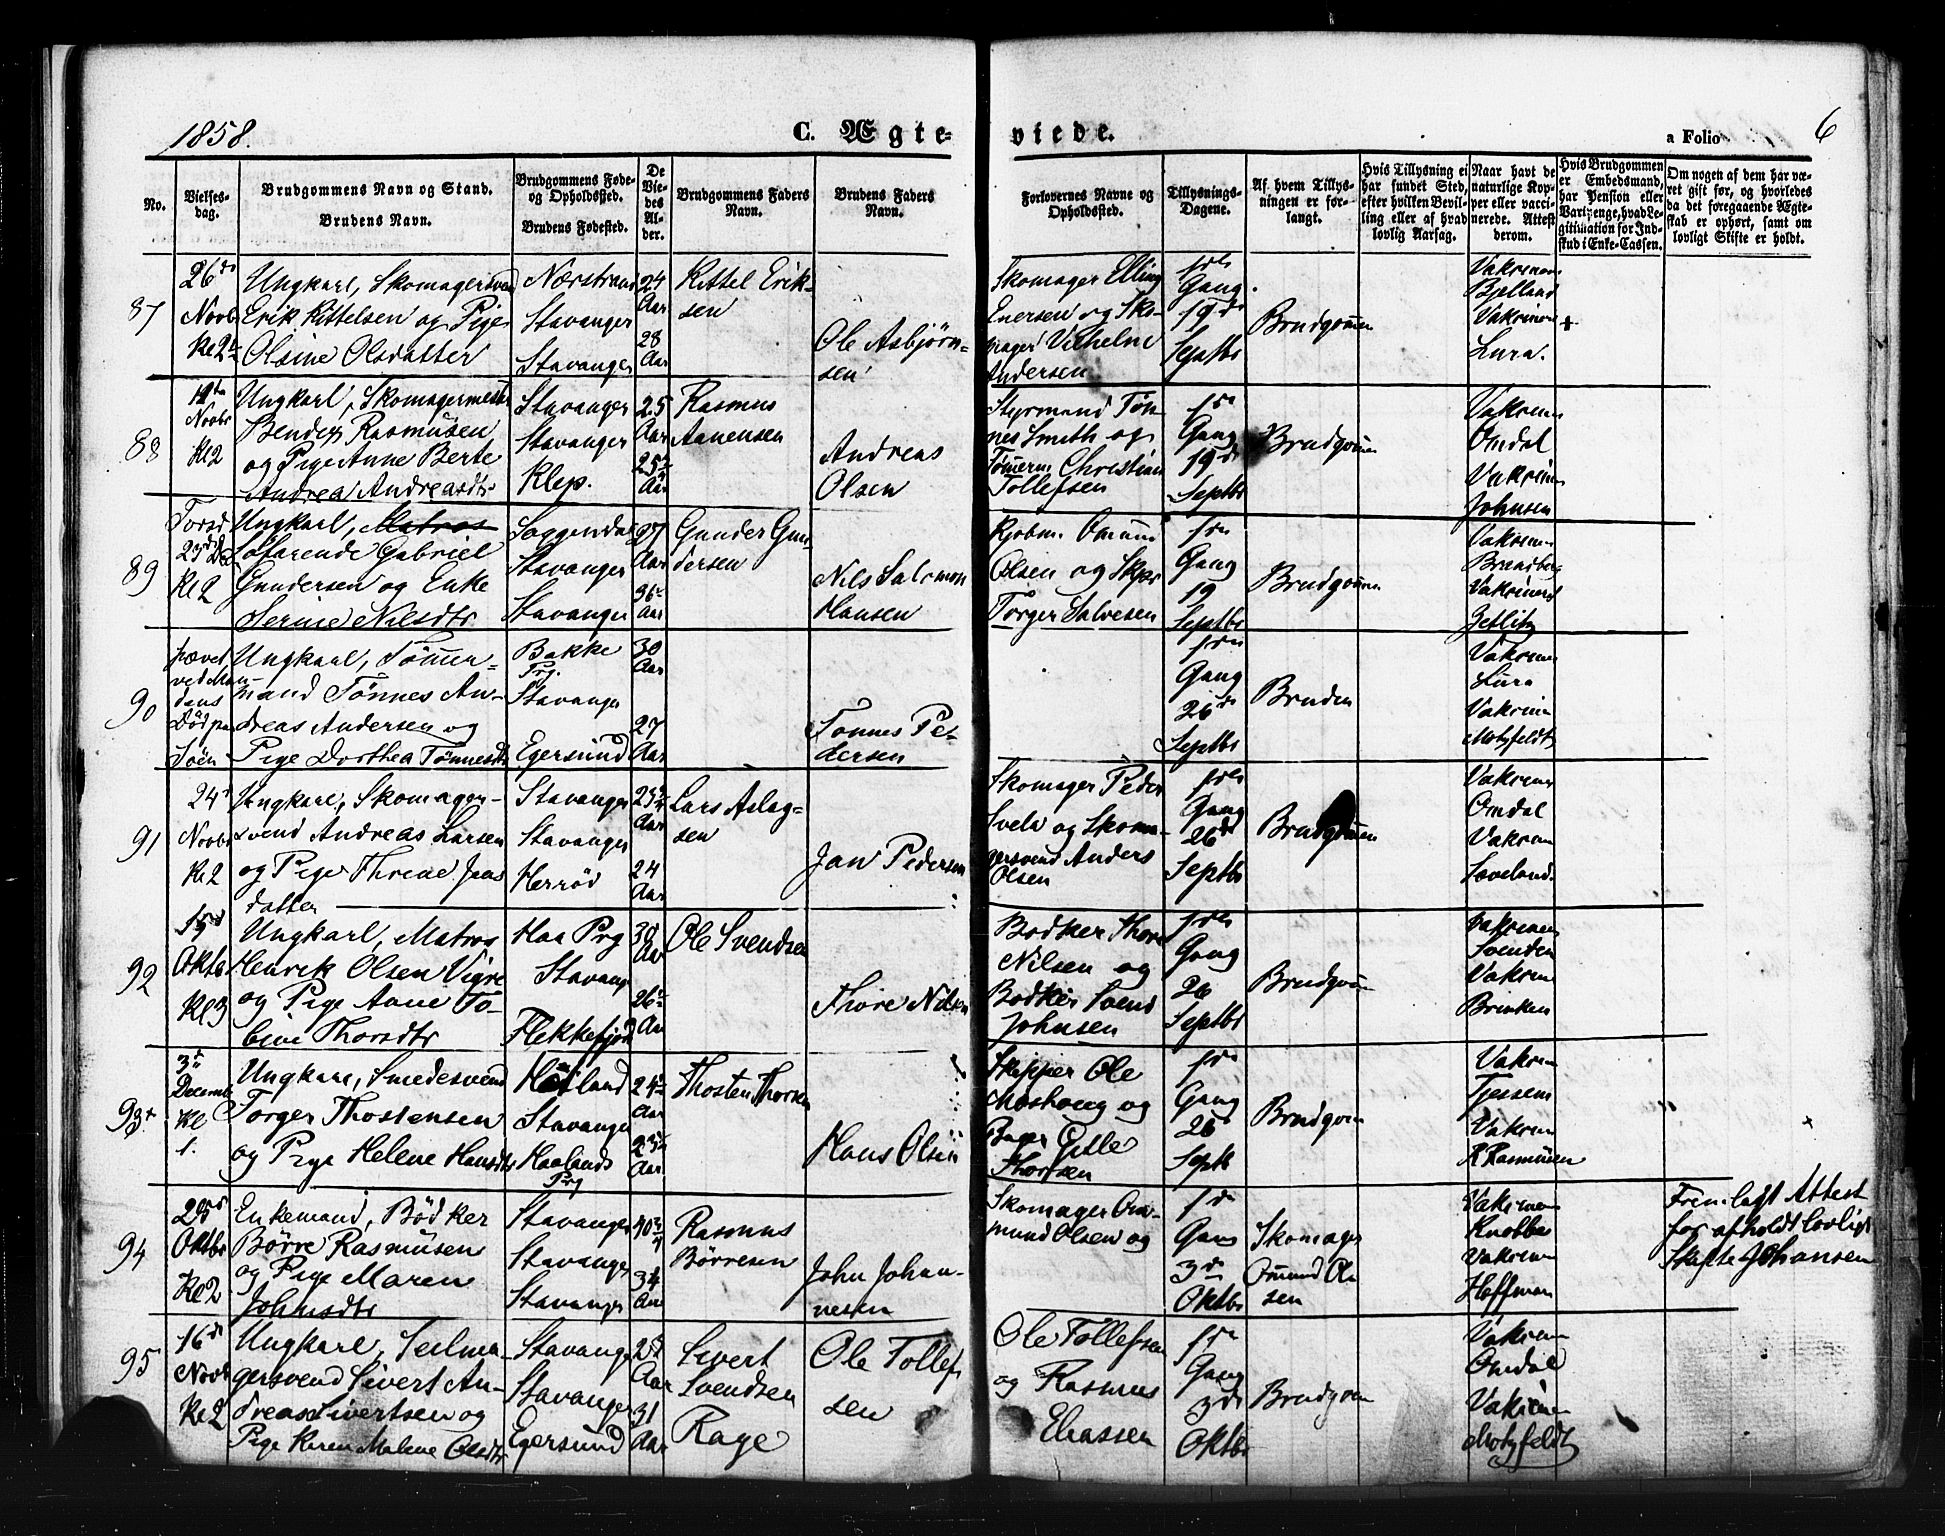 1858.
C. Ægte-
viede.
a Folio
6
No.
Vielses-
dag.
Brudgommens Navn og Stand.
Brudens Navn.
Brudgommens Føde-
og Opholdssted.
Brudens Fødested.
De
Vie-
des
Al-
der.
Brudgommens Faders
Navn.
Brudens Faders
Navn.
Forlovernes Navne og
Opholdssted.
Tillysnings-
Dagene.
Af hvem Tillys-
ningen er for-
langt.
Hvis Tillysning ei
har fundet Sted,
efter hvilken Bevil-
ling eller af hvad
lovlig Aarsag.
Naar havt de
naturlige Kop-
per eller vacci-
nerede. Attest
derom.
Hvis Brudgommen
er Embedsmand,
har Pension eller
Vartpenge, hvad Le-
gitimation for Ind-
skud i Enke-Cassen.
Om nogen af dem har væ-
ret gift før, og hvorledes
da det foregaaende Ægte-
skab er ophørt, samt om
lovligt Skifte er holdt.
87
26de
Novbr
Kl 2
Ungkarl, Skomagersvend
Erik Kittelsen og Pige
Olsine Olsdatter
Nærstrand
Stavanger
Stavanger
24
Aar
28
Aar
Kittel Erik-
sen
Ole Asbjørn-
sen
Skomager Elling
Enersen og Sko-
mager Vilhelm
Andersen
1ste
Gang
19de
Septbr
Brudgommen
Bjelland
Lura.
88
Novbr
Kl 2
Ungkarl, Skomagermester
Rasmusen
og Pige Anne Berte
Andrea Andreasdtr
Stavanger
Stavanger
Klep.
25
Aar
25
Aar
Rasmus
Aanensen
Andreas
Olsen
Styrmand Tøn-
nes Smith og
Tømerm Christian
Tollefsen
Gang
19de
Septbr
Brudgommen
Omdal
Johnsen
89
Torsd
23de
Kl 2
Ungkarl, Matros
Søfarende Gabriel
Gundersen og Enke
Serine Nilsdtr
Soggendal
Stavanger
Stavanger
27
Aar
36
Aar
Gunder Gun-
dersen
Nils Salomon
Hansen
Olsen og Skpr
Torger Salvesen
Gang
19
Septbr
Brudgommen
Zetlitz
90
hævet
ved Man-
dens
Død paa
Søen
Ungkarl, Tømmer-
mand Tønnes An-
dreas Andersen og
Pige Dorthea Tønnesdtr
Bakke
Prg.
Stavanger
Egersund
30
Aar
27
Aar
Tønnes Pe-
dersen
Gang
26de
Septbr
Bruden
Lura
Motzfeldt
91
24de
Novbr
Kl 2
Ungkarl, Skomager-
svend Andreas Larsen
og Pige Threne Jans
datter
Stavanger
Stavanger
Herrød
Aar
24
Aar
Lars Aslag-
sen
Jan Pedersen
Skomager Peder
Svela og Skoma-
gersvend Anders
Olsen
Gang
26de
Septbr
Brudgommen
Omdal
Loveland.
92
Oktbr
Kl 3
Ungkarl, Matros
Henrik Olsen Vigre
og Pige Anne To-
bine Thorsdtr
Haa Prg
Stavanger
Flekkefjord
30
Aar
26
Aar
Ole Svendsen
Thore Nilsen
Bødker Thore
Nilsen og
Bødker Svend
Johnsen
Gang
26
Septbr
Brudgom
Svendsen
93
3de
Decembr
Kl
1.
Ungkarl, Smedesvend
Torger Thostensen
og Pige Helene Hansdtr
Hetland
Stavanger
Haalands
Prg
24
Aar
23
Aar
Thosten Thorsen
Hans Olsen
Skipper Ole
og
Thorsen
Gang
26
Sept
Brudgom
Tjessem
R Rasmusen
94
Oktbr
Kl 2
Enkemand, Bødker
Børre Rasmusen
og Pige Maren
Johnsdtr
Stavanger
Stavanger
Stavanger
40
34
Aar
Rasmus
Børresen
John Johan-
nesen
Skomager Om-
mund Olsen og
Gang
3de
Oktbr
Skomager
Ommund Ol-
sen
Knobbe
Hoffman
Fremlagt Attest
for afholdt lovligt
Skifte Johansen
95
16de
Novbr
Kl 2
Ungkarl, Seilma-
gersvend Sivert An-
dreas Sivertsen og
Pige Karen Malene Olsdtr
Stavanger
Stavanger
Egersund
Aar
31
Aar
Sivert
Svendsen
Rage
Ole Tollef-
sen
Ole Tollefsen
og Rasmus
Eliassen
Gang
3de
Oktbr
Brudgom
Omdal
Motzfeldt